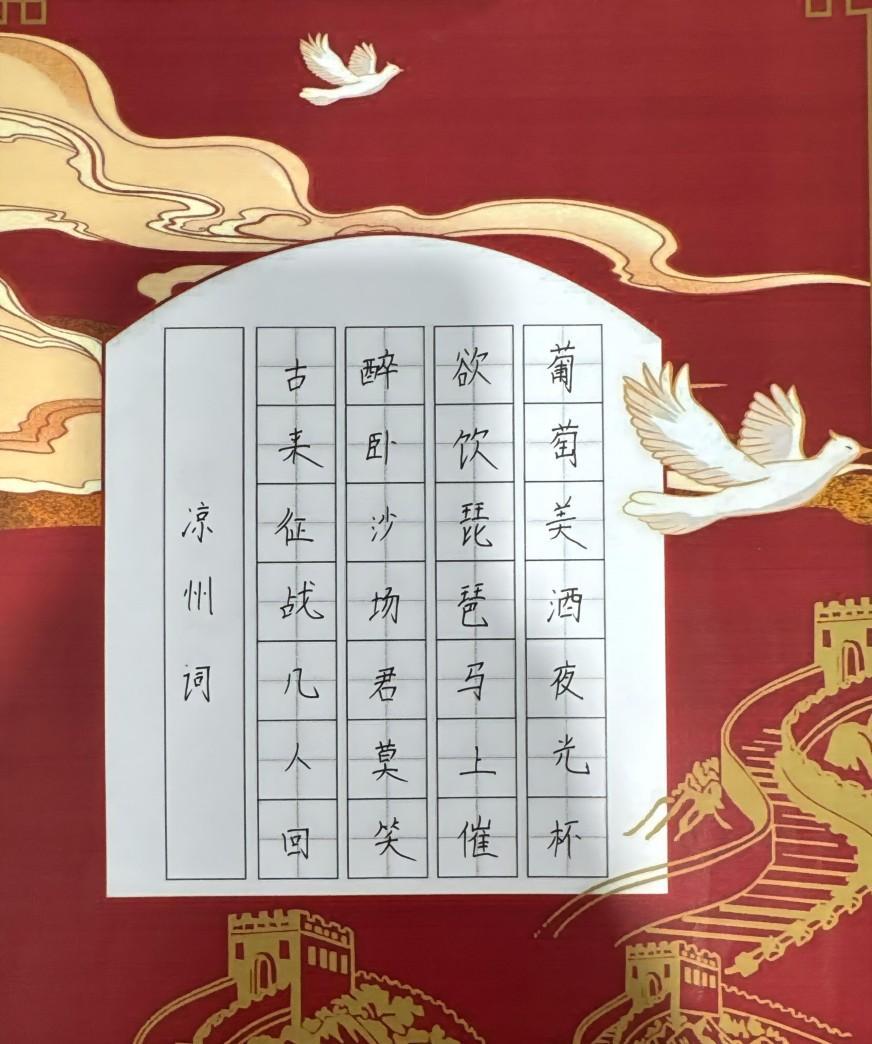 葡萄美酒夜光杯
欲饮琵琶马上催
醉卧沙场君莫笑
古来征战几人回
凉州词